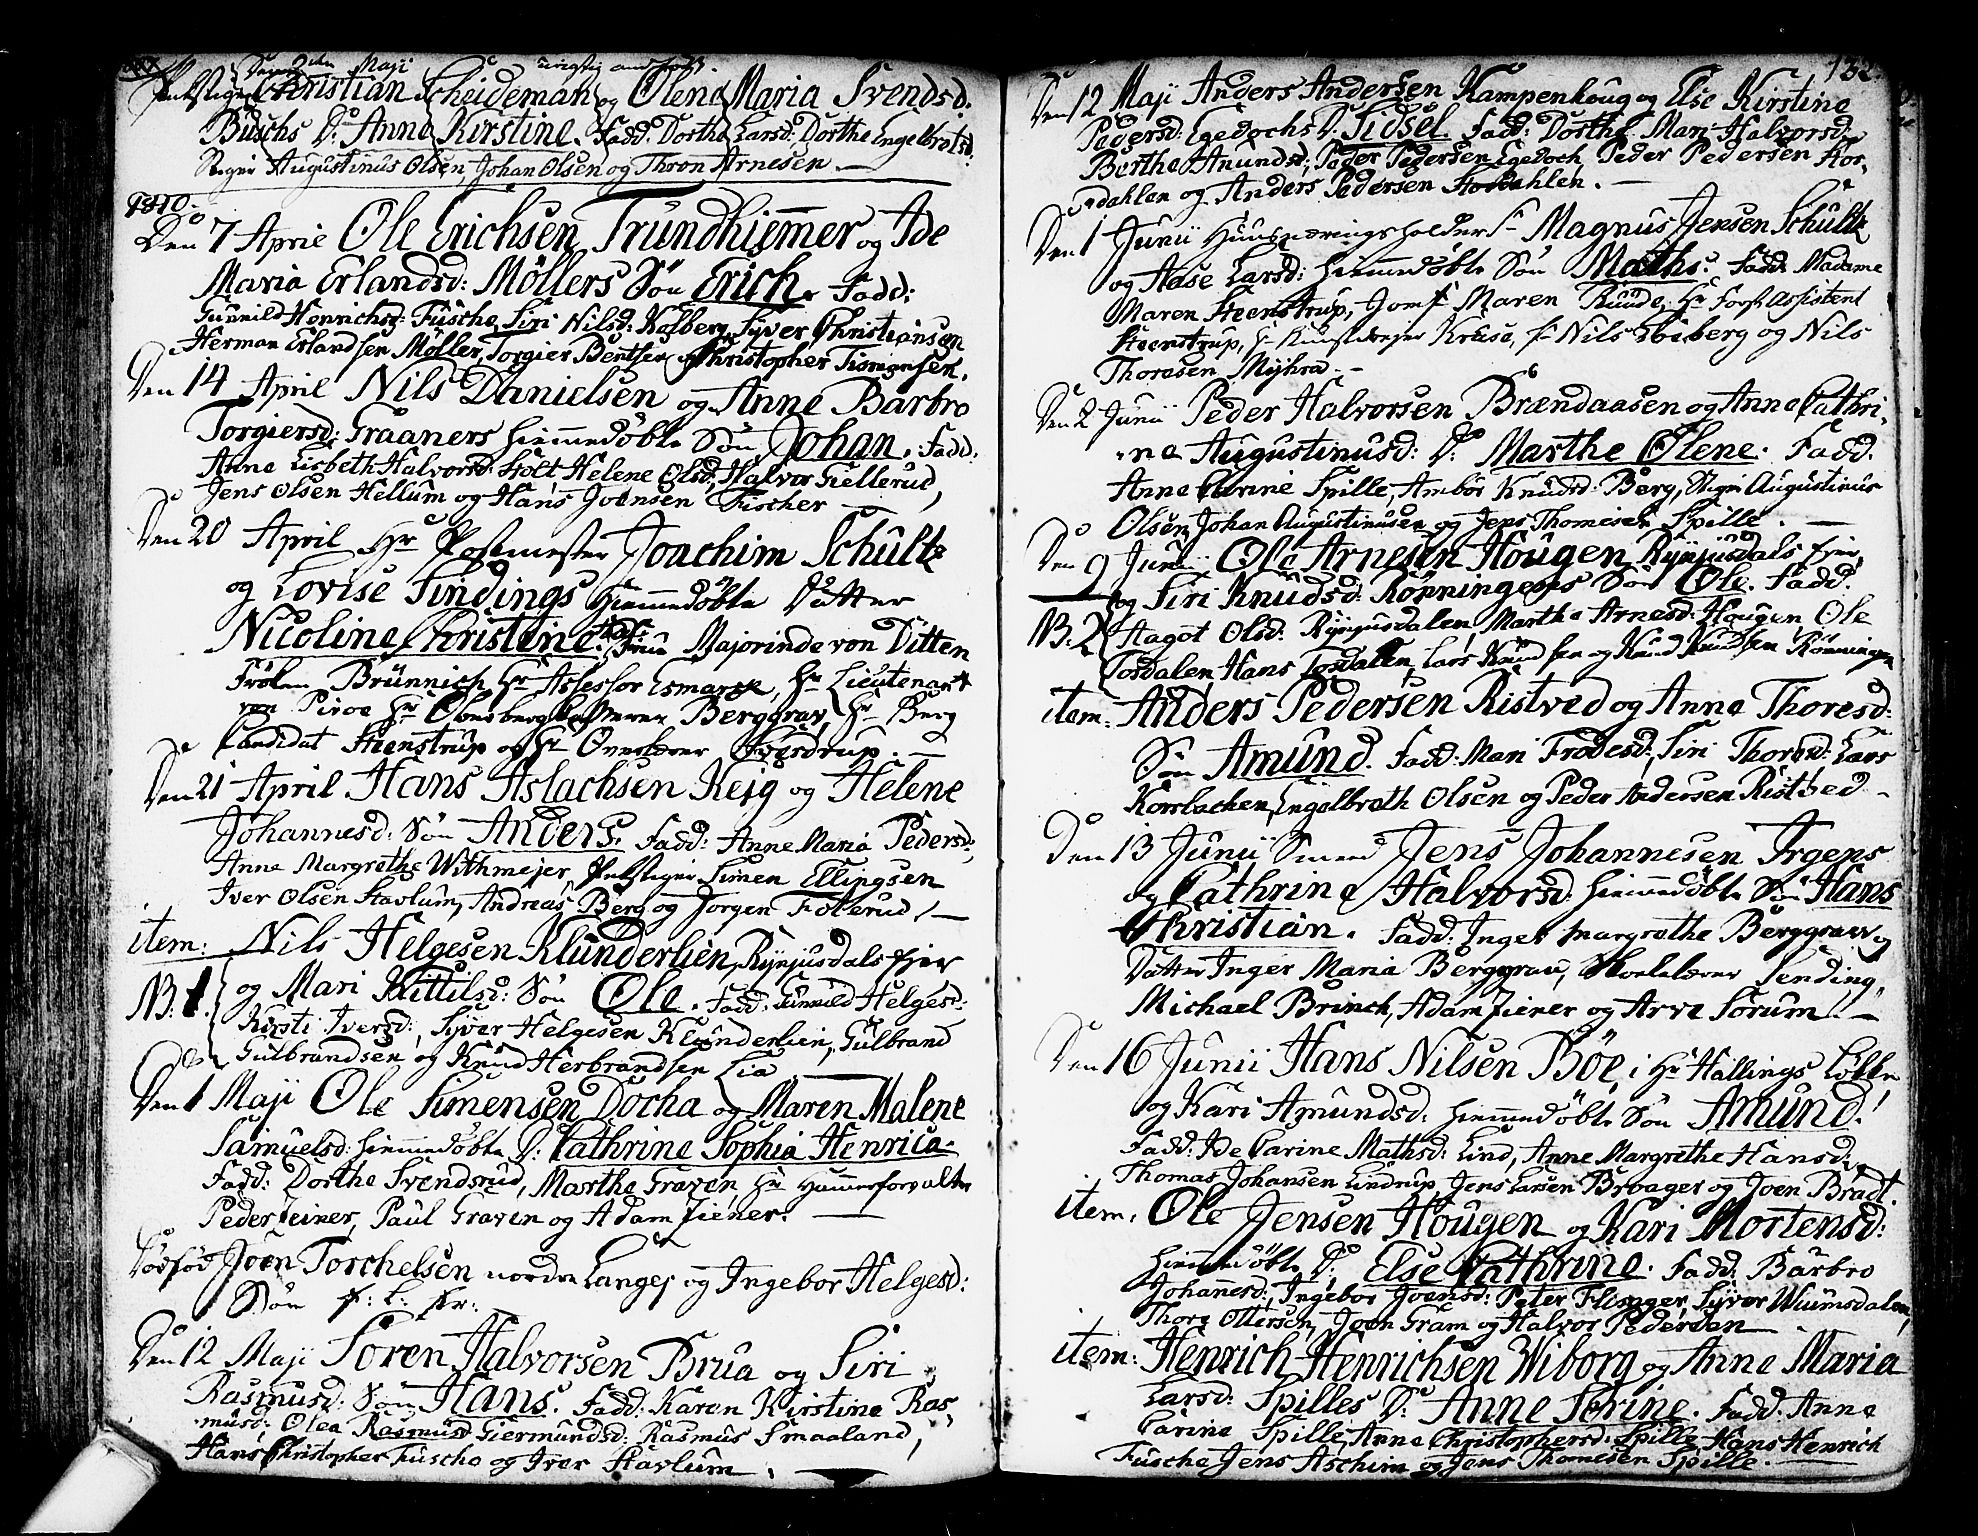 Den 2den Maji
Christian Scheideman og Olena Maria Svendsd.
Buschs D: Anne Kirstine. Fadd: Dorthe Larsd: Dorthe Engelbretsd:
Stiger Augustinus Olsen, Johan Olsen og Thron Arnesen
1810.
Den 7 April Ole Erichsen Trundhiemmer og Ide
Maria Erlandsd: Möllers Sön Erich. Fadd:
Gunnild Henrichsd: Fusche, Siri Nilsd: Kolberg, Syver Christiansen
Herman Erlandsen Möller, Torgier Bentsen og Christopher Simensen.
Den 14 April Nils Danielsen og Anne Barbro
Torgiersd: Graaners hiemmedöbte Sön Johan. Fadd:
Anne Lisbeth Halvorsd: Holt Helene Olsd: Halvor Gellerud,
Jens Olsen Hellum og Hans Joensen Fischer
Den 20 April Hr Postmester Joachim Schultz
og Lovise Sindings hiemmedöbte Datter
Nicoline Christine. Frue Majorinde von Ditten
Frölen Brünnich Hr Assessor Esmarck, Hr Lieutenant
Hr Berggrav, Hr Berg
Candidat Steenstrup og Hr Overlærer
Den 21 April Hans Aslachsen Rejg og Helene
Johannesd: Sön Anders. Fadd: Anne Maria Pedersd:
Anne Margrethe Withmejer, Simen Ellingsen
Iver Olsen Stavlum, Andreas Berg og Jörgen Foterud,
item: Nils Helgesen Klunderlien, Rynjusdals fjer
NB. 1. og Mari Kittilsd: Sön Ole. Fadd: Gunnild Helgesd:
Kirsti Iversd: Syver Helgesen Klunderlien, Gulbrand
Gulbrandsen og Knud Herbrandsen Lia
Den 1 Maji Ole Simensen Docha og Maren Malene
Samuelsd: hiemmedöbte D: Cathrine Sophia Henrica
Fadd: Dorthe Svendsrud, Marthe Graven, Hr Hammerforvalter
Peder Ziener, Paul Graven og Adam Ziener.
Dödföd Joen Torchelsen nordre Langej og Ingebor Helgesd:
Sön
Den 12 Maji Sören Halvorsen Brua og Siri
Rasmusd: Sön Hans. Fadd: Karen Kirstine Ras-
musd: Olea Rasmusd Giermundsd: Rasmus Smaaland,
Hans Christopher Fusche og Iver Stavlum.
132.
Den 12 Maji Anders Andersen Kampenhoug og Else Kirstine
Pedersd: Egedochs D: Sidsel. Fadd: Dorthe Mari Halvorsd:
Berthe Anundsd; Peder Pedersen Egedoch Peder Pedersen Stor-
dahlen og Anders Pedersen Stordahlen.
Den 1 Junii Huusnæringsholder Sr Magnus Jensen Schultz
og Aase Larsd: hiemmedöbte Sön Maths. Fadd: Madame
Maren Steenstrup, Jomfr Maren Ruude, Hr Forst Assistent
Steenstrup, Sr Kunstdrejer Kruse, Sr Nils Hoberg og Nils
Thoresen Myhra.
Den 2 Junii Peder Halvorsen Brændaasen og Anne Cathri-
ne Augustinusd: D: Marthe Olene. Fadd.
Anne Carine Spille, Ambör Knudsd: Berg, Stiger Augustinus
Olsen, Johan Augustinusen og Jens Thomesen Spille.
Den 9 Junii Ole Arnesen Hougen Rynjusdals fjer,
og Siri Knudsd: Rönningens Sön Ole. Fadd:
NB. 2 Aagot Olsd: Rynjusdalen, Marthe Arnesd: Hougen Ole
Tosdalen, Hans Tosdalen, Lars Knudsen og Knud Knudsen Rönningen
item: Anders Pedersen Ristved og Anne Thoresd:
Sön Amund. Fadd: Mari Frodesd: Siri Thoresd: Lars
Korsbachen, Engelbreth Olsen og Peder Andersen Ristved
Den 13 Junii Smeed Jens Johannesen Irgens
og Cathrine Halvorsd: hiemmedöbte Sön Hans
Christian. Fadd: Inger Margrethe Berggrav og
Datter Inger Maria Berggrav, Skolelærer Sending,
Michael Brinch, Adam Ziener og Arve Sorum.
Den 16 Junii Hans Nilsen Böe, i Hr Hallings Lökke
og Kari Amundsd: hiemmedöbte Sön Amund.
Fadd: Ide Carine Mathsd: Lind, Anne Margrethe Hansd:
Thomas Johansen Lindrup, Jens Larsen Broager og Joen Bradt.
item: Ole Jensen Hougen og Kari Mortensd:
hiemmedöbte D: Else Cathrine. Fadd: Barbro
Johannesd:, Ingebor Joensd: Peter Flinger, Syver Wiumsdalen,
Thore Ottersen, Joen Gram og Halvor Pedersen
item: Henrich Henrichsen Wiborg og Anne Maria
Larsd: Spilles D: Anne Serine. Fadd: Anne
Carine Spille, Anne Christophersd: Spille Hans Henrich
Fusche, Jens Aschim og Jens Thomesen Spille.